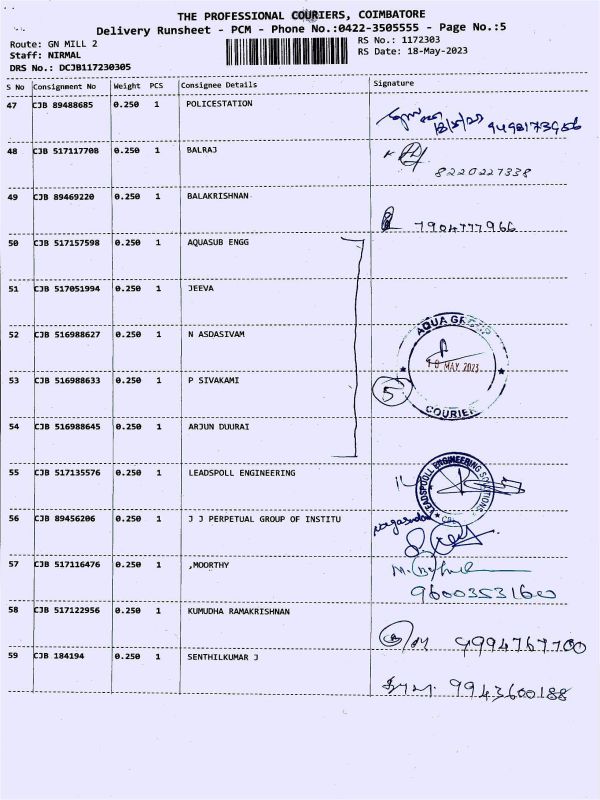 THE PROFESSIONAL COURIERS, COIMBATORE
Delivery Runsheet - PCM - Phone No.:0422-3505555 - Page No.:5
Route: GN MILL 2 RS No.: 1172303
Staff: NIRMAL RS Date: 18-May-2023
DRS No.: DCJB117230305
S No Consignment No Weight PCS Consignee Details Signature
47 CJB 89488685 0.250 1 POLICESTATION
18/5/23
48 CJB 517117708 0.250 1 BALRAJ
8220227338
49 CJB 89469220 0.250 1 BALAKRISHNAN
7904777966
50 CJB 517157598 0.250 1 AQUASUB ENGG
51 CJB 517051994 0.250 1 JEEVA
AQUA GROUP
52 CJB 516988627 0.250 1 N ASDASIVAM
MAY 2023
53 CJB 516988633 0.250 1 P SIVAKAMI
5
COURIER
54 CJB 516988645 0.250 1 ARJUN DUURAI
55 CJB 517135576 0.250 1 LEADSPOLL ENGINEERING
LEADSPOLL ENGINEERING SOLUTIONS
56 CJB 89456206 0.250 1 J J PERPETUAL GROUP OF INSTITU
57 CJB 517116476 0.250 1 ,MOORTHY
9600353160
58 CJB 517122956 0.250 1 KUMUDHA RAMAKRISHNAN
9994767700
59 CJB 184194 0.250 1 SENTHILKUMAR J
9943600188